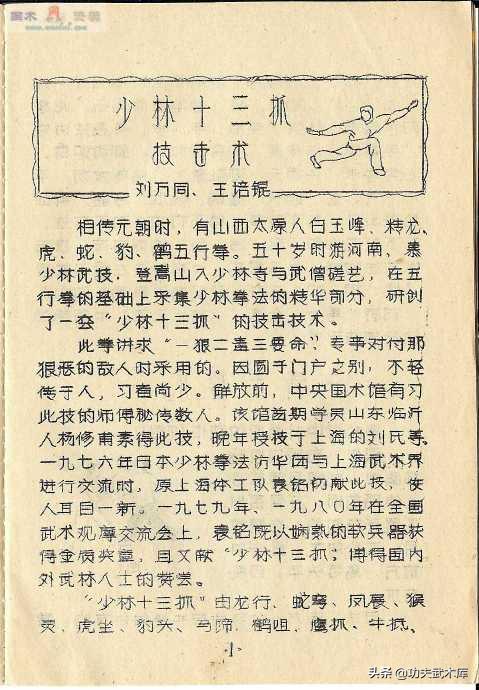 国术
资讯
少林十三抓
技击术
刘万同、王培锟
相传元朝时，有山西太原人白玉峰、精龙、
虎、蛇、豹、鹤五行拳。五十岁时游河南、慕
少林武技，登嵩山入少林寺与武僧磋艺，在五
行拳的基础上采集少林拳法的精华部分，研创
了一套“少林十三抓”的技击技术。
此拳讲求“一狠二毒三要命”，专事对付那
狠恶的敌人时采用的。因囿于门户之别，不轻
传于人，习者尚少。解放前，中央国术馆有习
此技的师傅秘传数人。该馆首期学员山东临沂
人杨修甫素得此技，晚年授技于上海的刘氏等。
一九七六年日本少林拳法访华团与上海武术界
进行交流时，原上海体工队袁铭初献此技、使
人耳目一新。一九七九年、一九八〇年在全国
武术观摩交流会上，袁铭既以娴熟的软兵器获
得金质奖章，且又献“少林十三抓”，博得国内
外武林人士的赞赏。
“少林十三抓”由龙行、蛇弯、凤展、猴
灵、虎坐、豹头、马蹄、鹤咀、鹰抓、牛抵、
·1·
头条 @功夫武术库